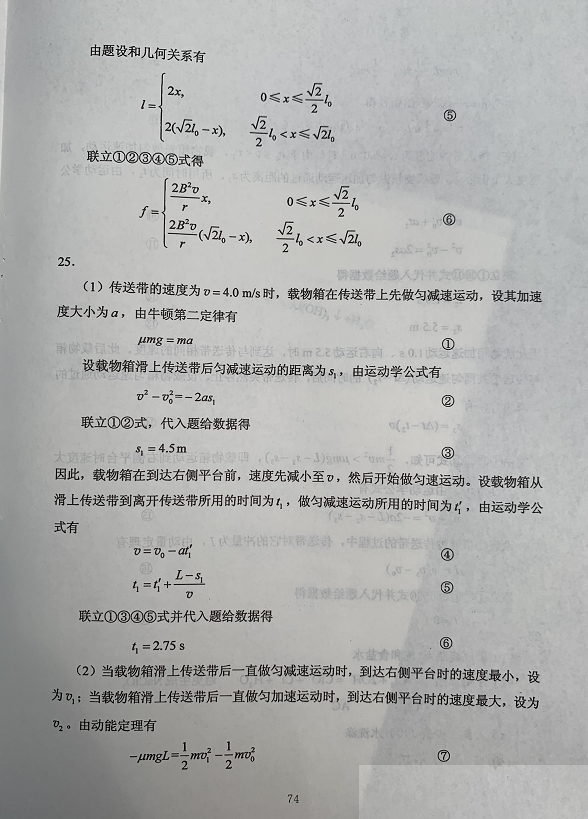 由题设和几何关系有
l = { 2x, 0≤x≤√2/2 l₀
2(√2l₀−x), √2/2 l₀<x≤√2l₀ ⑤
联立①②③④⑤式得
f = { 2B²v/r x, 0≤x≤√2/2 l₀
2B²v/r (√2l₀−x), √2/2 l₀<x≤√2l₀ ⑥
25.
（1）传送带的速度为 v=4.0 m/s 时，载物箱在传送带上先做匀减速运动，设其加速
度大小为 a，由牛顿第二定律有
μmg = ma ①
设载物箱滑上传送带后匀减速运动的距离为 s₁，由运动学公式有
v²−v₀²=−2as₁ ②
联立①②式，代入题给数据得
s₁ = 4.5m ③
因此，载物箱在到达右侧平台前，速度先减小至 v，然后开始做匀速运动。设载物箱从
滑上传送带到离开传送带所用的时间为 t₁，做匀减速运动所用的时间为 t₁′，由运动学公
式有
v = v₀ − at₁′ ④
t₁ = t₁′ + (L−s₁)/v ⑤
联立①③④⑤式并代入题给数据得
t₁ = 2.75 s ⑥
（2）当载物箱滑上传送带后一直做匀减速运动时，到达右侧平台时的速度最小，设
为 v₁；当载物箱滑上传送带后一直做匀加速运动时，到达右侧平台时的速度最大，设为
v₂。由动能定理有
−μmgL=1/2 mv₁²−1/2 mv₀² ⑦
74